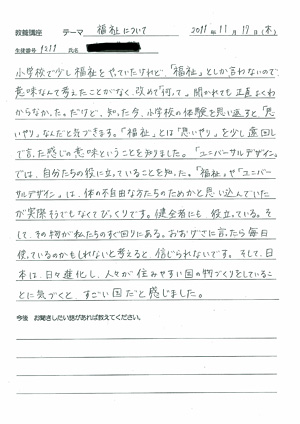 教養講座 テーマ 福祉について 2011年11月17日(木)
生徒番号 1211 氏名
小学校で少し福祉をやっていたけれど、「福祉」としか言わないので
意味なんて考えたことがなく、改めて「何？」て聞かれても正直よくわ
からなかった。だけど、知った今、小学校の体験を思い返すと「思
いやり」なんだと気づきます。「福祉」とは「思いやり」を少し遠回し
で言った感じの意味ということを知りました。「ユニバーサルデザイン」
では、自分たちの役に立っていることを知った。「福祉」や「ユニバー
サルデザイン」は、体の不自由な方たちのためかと思い込んでいた
が実際そうでもなくてびっくりです。健全者にも役立っている。そ
して、その物が私たちのすぐ回りにある。おおげさに言ったら毎日
使っているのかもしれないと考えると、信じられないです。そして、日
本は、日々進化し、人々が住みやすい国の物づくりをしているこ
とに気づくと、すごい国だと感じました。
今後 お聞きしたい話があれば教えてください。